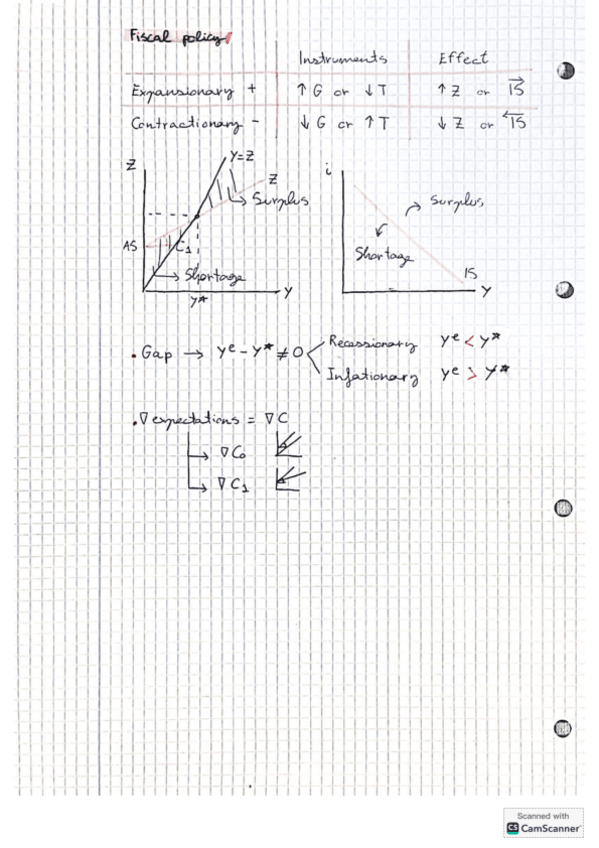 Fiscal policy
Instruments Effect
Expansionary + ↑ G or ↓ T ↑ Z or →IS
Contractionary - ↓ G or ↑ T ↓ Z or ←IS
Z Y=Z Z Surplus
AS C₁ Shortage
Y* Y
i Surplus
Shortage
IS Y
. Gap → Yᵉ - Y* ≠ 0
Recessionary Yᵉ < Y*
Inflationary Yᵉ > Y*
. ∇ expectations = ∇ C
↳ ∇ C₀
↳ ∇ C₁
Scanned with
CS CamScanner